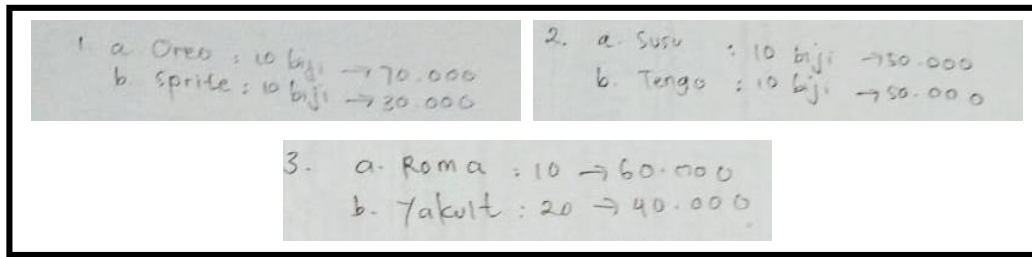 1. a Oreo : 10 biji → 70.000
b. Sprite : 10 biji → 30.000
2. a. Susu : 10 biji → 50.000
b. Tengo : 10 biji → 50.000
3. a. Roma : 10 → 60.000
b. Yakult : 20 → 40.000